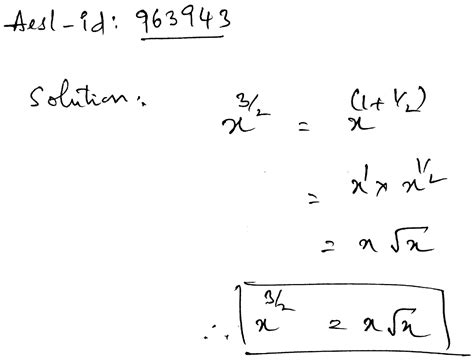 Aesl-id: 963943
Solution:
x^{3/2} = x^{(1+1/2)}
= x^1 × x^{1/2}
= x √x
∴ x^{3/2} = x √x